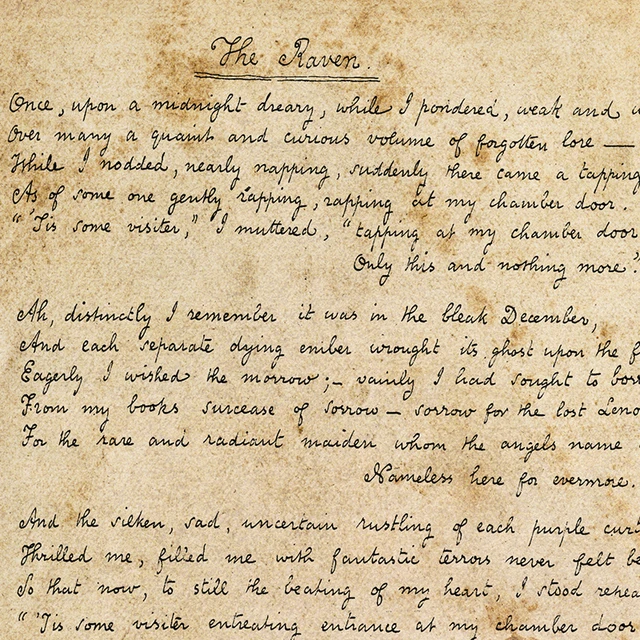 The Raven.
Once, upon a midnight dreary, while I pondered, weak and
Over many a quaint and curious volume of forgotten lore —
While I nodded, nearly napping, suddenly there came a tapping
As of some one gently rapping, rapping at my chamber door.
"'Tis some visiter," I muttered, "tapping at my chamber door
Only this and nothing more."
Ah, distinctly I remember it was in the bleak December,
And each separate dying ember wrought its ghost upon the
Eagerly I wished the morrow; – vainly I had sought to
From my books surcease of sorrow – sorrow for the lost
For the rare and radiant maiden whom the angels name
Nameless here for evermore.
And the silken, sad, uncertain rustling of each purple
Thrilled me, filled me with fantastic terrors never felt
So that now, to still the beating of my heart, I stood
"'Tis some visiter entreating entrance at my chamber door